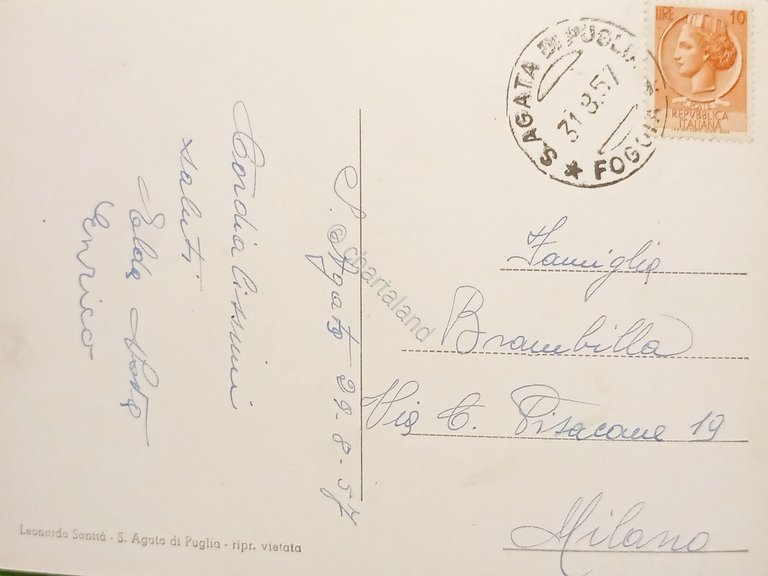 S. Agata 29-8-57
Cordialissimi
saluti
Enrico
Leonardo Sonità - S. Agata di Puglia - ripr. vietata
LIRE 10
REPVBBLICA
ITALIANA
S. AGATA DI PUGLIA
31.8.57
FOGGIA
Famiglia
Brambilla
Via C. Pisacane 19
Milano
@chartaland